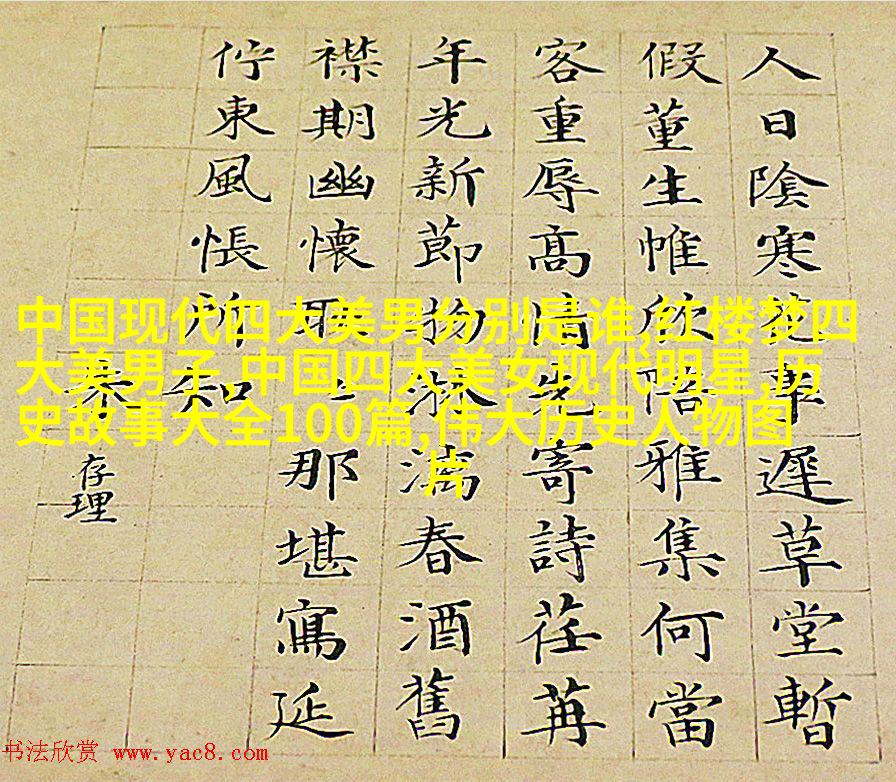 人日陰寒車遲草堂暫
假董生帷欣悟雅集何當
客重辱高情先寄詩荏苒
年光新節物淋漓春酒舊
襟期幽懷那堪寫延
佇東風悵所知
存理
中国现代四大美男分别是谁,红楼梦四
大美男子,中国四大美女现代明星,历
史故事大全100篇,伟大历史人物图
片
书法欣赏 www.yac8.com